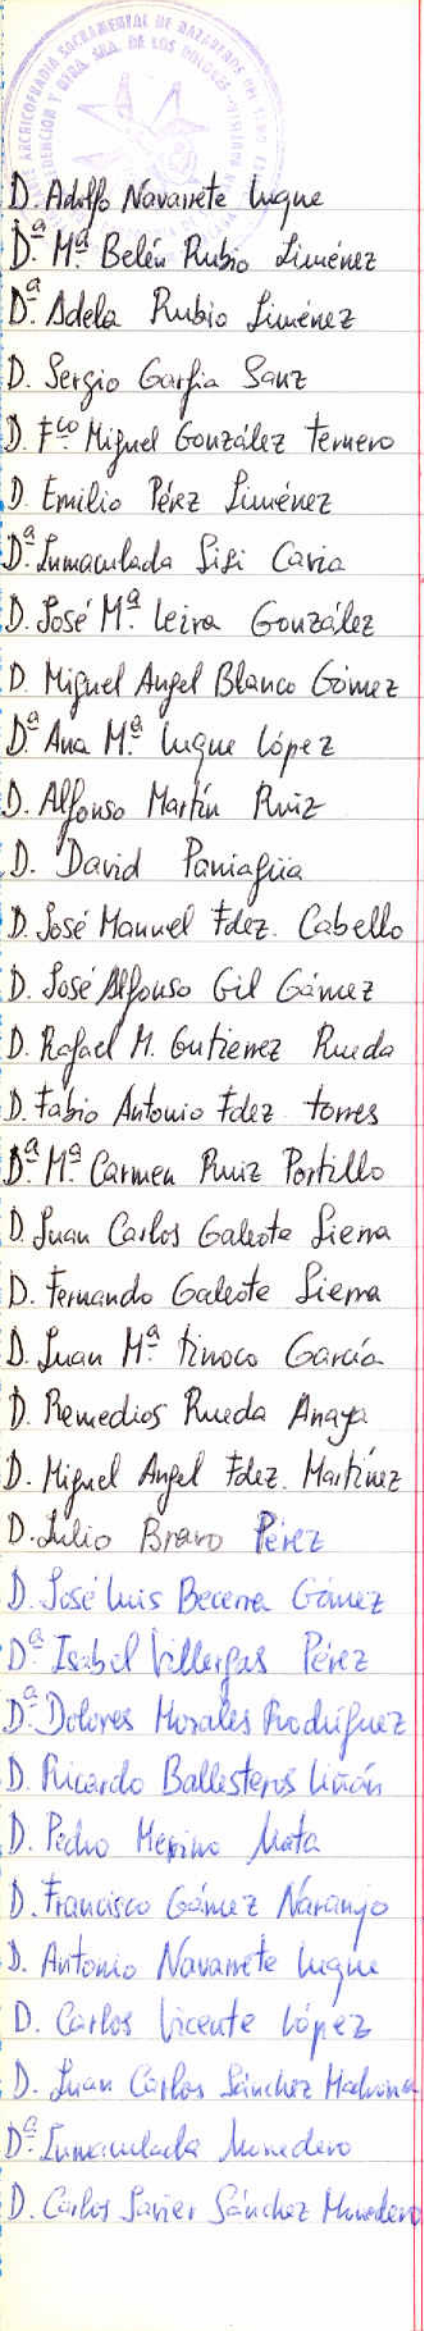 ARCHICOFRADIA SACRAMENTAL DE NAZARENOS DEL
REDENCION Y NTRA. SRA. DE LOS DOLORES
D. Adolfo Navarrete Luque
Dª. Mª. Belén Rubio Jiménez
Dª. Adela Rubio Jiménez
D. Sergio Garfia Sanz
D. Fco. Miguel González Ternero
D. Emilio Pérez Jiménez
Dª. Inmaculada Sisi Cavia
D. José Mª. Leiva González
D. Miguel Angel Blanco Gómez
Dª. Ana Mª. Luque López
D. Alfonso Martín Ruiz
D. David Paniagüa
D. José Manuel Fdez. Cabello
D. José Alfonso Gil Gámez
D. Rafael M. Gutierrez Rueda
D. Fabio Antonio Fdez. Torres
Dª. Mª. Carmen Ruiz Portillo
D. Juan Carlos Galeote Sierra
D. Fernando Galeote Sierra
D. Juan Mª. Tinoco García
D. Remedios Rueda Anaya
D. Miguel Angel Fdez. Martínez
D. Julio Bravo Pérez
D. José Luis Becerra Gámez
Dª. Isabel Villergas Pérez
Dª. Dolores Morales Rodríguez
D. Ricardo Ballesteros Liñán
D. Pedro Merino Mata
D. Francisco Gámez Naranjo
D. Antonio Navarrete Luque
D. Carlos Vicente López
D. Juan Carlos Sánchez
Dª. Inmaculada Monedero
D. Carlos Javier Sánchez Monedero